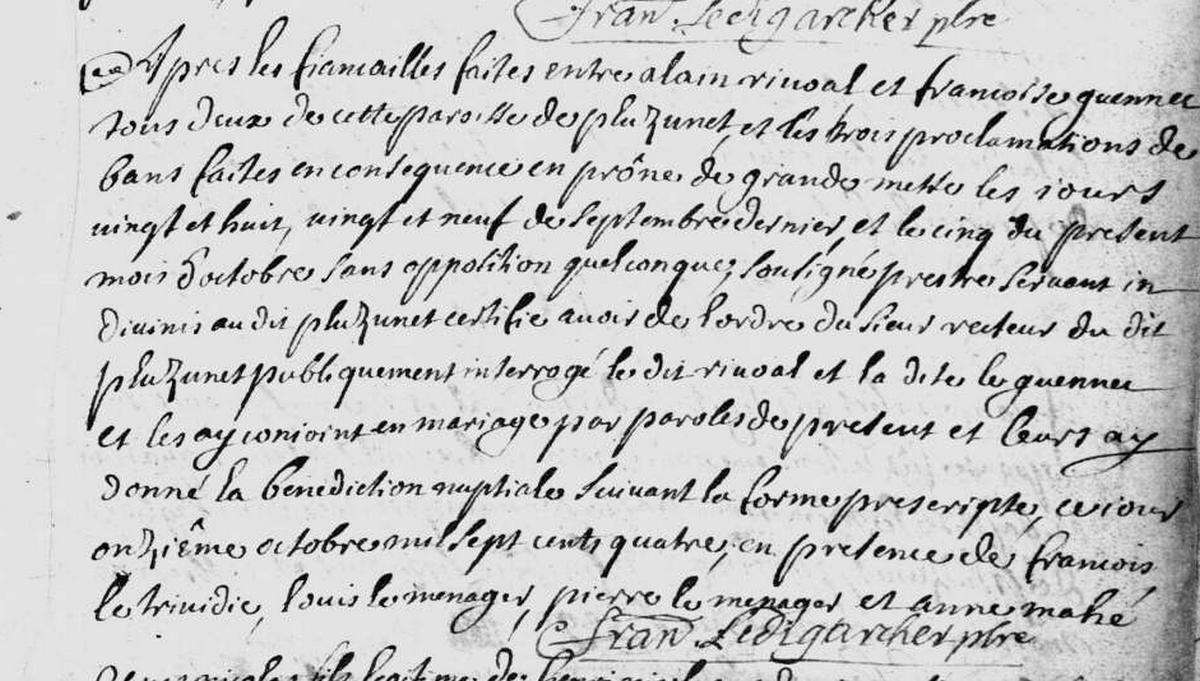 Fran. Ledigarcher pbre
Apres les fiancailles faites entre alain riuoal et francoise guennec
tous deux de cette paroisse de pluzunet, et les trois proclamations de
bans faites en consequence en prône de grande messe les iours
uingt et huit, uingt et neuf de septembre dernier, et le cinq du present
mois d'octobre sans opposition quelconque, sousigné prestre seruant in
diuinis au dit pluzunet certifie auoir de l'ordre du sieur recteur du dit
pluzunet publiquement interrogé le dit riuoal et la dite le guennec
et les ay conioint en mariage par paroles de present et leurs ay
donné la benediction nuptiale suiuant la forme prescripte, ce iour
onzième octobre mil sept cents quatre, en presence de francois
le triuidic, louis le menager, pierre le menager et anne mahé
Fran. Ledigarcher pbre
fils legitime de